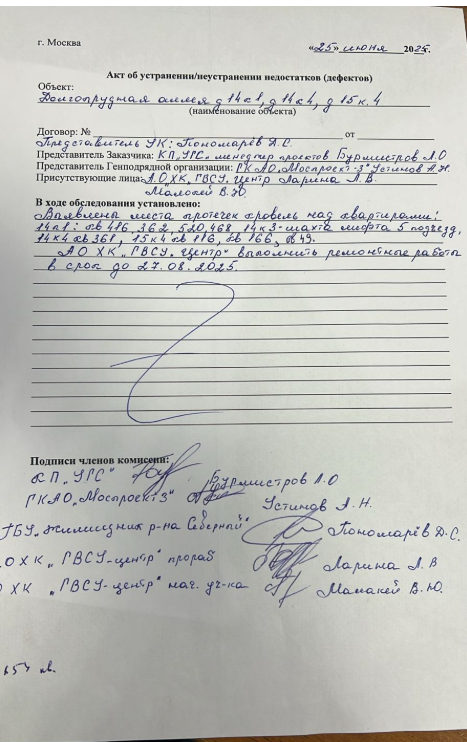 г. Москва «25» июня 2025г.
Акт об устранении/неустранении недостатков (дефектов)
Объект:
Долгопрудная аллея д 14к1, д 14к4, д 15 к.4
(наименование объекта)
Договор: № от
Представитель УК: Пономарёв Д.С.
Представитель Заказчика: КП „УГС" менеджер проектов Бурмистров Л.О
Представитель Генподрядной организации: ГКАО „Моспроект-3" Устинов А.Н.
Присутствующие лица: АО ХК „ГВСУ. Центр" Ларина Л.В.
Мамакей В.Ю.
В ходе обследования установлено:
Выявлены места протечек кровель над квартирами:
14к1: кв 416, 362, 520, 468, 14к3-шахта лифта 5 подъезд,
14к4 кв 361, 15к4 кв 116, кв 166, кв 49.
АО ХК „ГВСУ. Центр" выполнить ремонтные работы
в срок до 27.08.2025.
Подписи членов комиссии:
КП „УГС" Бурмистров Л.О
ГКАО „Моспроект3" Устинов А.Н.
ГБУ „Жилищник р-на Северный" Пономарёв Д.С.
О ХК „ГВСУ-центр" прораб Ларина Л.В
О ХК „ГВСУ-центр" нач. уч-ка Мамакей В.Ю.
кв.